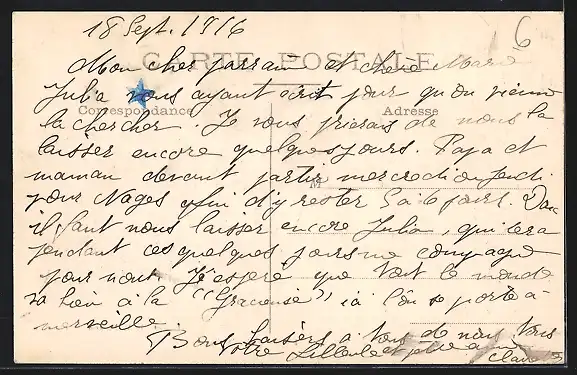 18 Sept. 1916
6
CARTE POSTALE
Mon cher parrain et chère Marie
Julia vous ayant écrit pour qu'on vienne
Correspondance
Adresse
la chercher. Je vous prierais de nous la
laisser encore quelques jours. Papa et
maman devant partir mercredi ou jeudi
M
pour Nages afin d'y rester 5 à 6 jours. Donc
il faut nous laisser encore Julia, qui sera
pendant ces quelques jours une compagne
pour nous. J'espère que tout le monde
va bien à la "Gracieuse" ici l'on se porte à
merveille.
Bons baisers à tous de nous tous
Votre filleule et
Claire